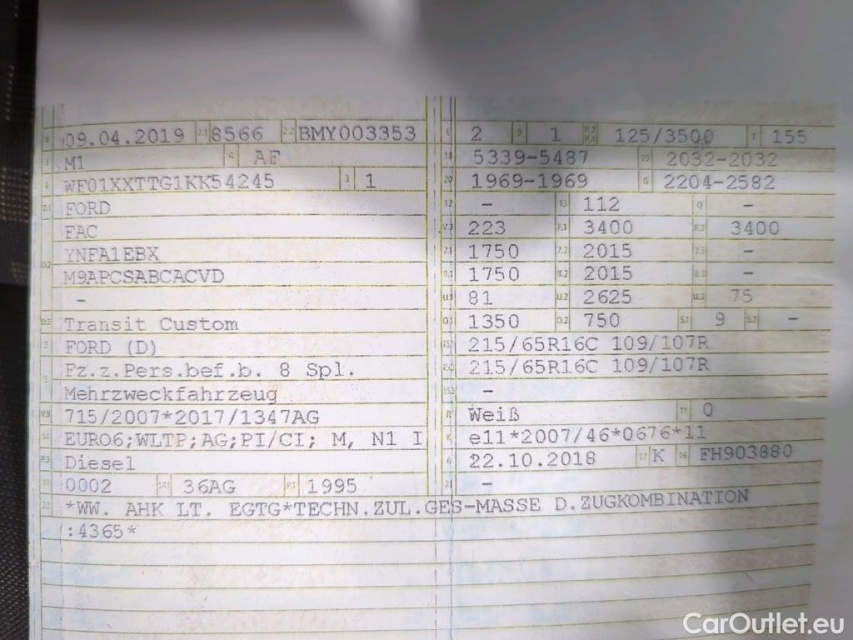 09.04.2019 2.1 8566 2.2 BMY003353
M1 4 AF
WF01XXTTG1KK54245 3 1
FORD
FAC
YNFA1EBX
M9APCSABCACVD
-
Transit Custom
FORD (D)
Fz.z.Pers.bef.b. 8 Spl.
Mehrzweckfahrzeug
715/2007*2017/1347AG
EURO6;WLTP;AG;PI/CI; M, N1 I
Diesel
0002 36AG 1995
2 9 1 125/3500 T 155
5339-5487 2032-2032
1969-1969 G 2204-2582
- 112 -
223 3400 3400
1750 2015 -
1750 2015 -
81 2625 75
1350 750 9 -
215/65R16C 109/107R
215/65R16C 109/107R
-
Weiß 0
e11*2007/46*0676*11
22.10.2018 K FH903880
-
*WW. AHK LT. EGTG*TECHN.ZUL.GES-MASSE D.ZUGKOMBINATION
:4365*
CarOutlet.eu